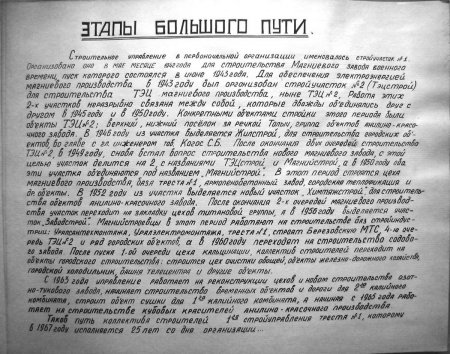 ЭТАПЫ БОЛЬШОГО ПУТИ.
Строительное управление в первоначальной организации именовалось стройучасток №1.
Организовано оно в мае месяце 1942 года для строительства Магниевого завода военного
времени, пуск которого состоялся в июне 1943 года. Для обеспечения электроэнергией
магниевого производства в 1943 году был организован стройучасток №2 (Тэцстрой)
для строительства ТЭЦ магниевого производства, ныне ТЭЦ №2. Работа этих
2-х участков неразрывно связана между собой, которые дважды объединялись друг с
другом в 1945 году и в 1950 году. Конкретными объектами стройки этого периода были
объекты ТЭЦ №2; Березки, нижний посёлок за речкой Толыч, города объектов анилино-красочного
завода. В 1946 году из участка выделяется Жилстрой, для строительства городских объ-
ектов, во главе с гл. инженером тов. Когос С.Б. После окончания двух очередей строительства
ТЭЦ №2 в 1948 году, снова встал вопрос строительства нового магниевого завода, с этой
целью участок делится на 2 с названиями ТЭЦстрой и Магнийстрой, а в 1950 году оба
эти участка объединяются под названием „Магнийстрой". В этот период строятся цеха
магниевого производства, база треста №1, армопенобетонный завод, городская теплофикация и
др объекты. В 1952 году из участка выделяется новый участок „Химпактстрой", для строитель-
ства объектов анилино-красочного завода. После окончания 2-х очередей магниевого производ-
ства участок переходит на закладку цехов титановой губки, а в 1959 году выделяется учас-
ток „Заводстрой". Магнийстроевцы в этот период работают на строительстве баз стройиндус-
трии: Уралсантехмонтажа, Уралэлектромонтажа, треста №1, строят Березовскую МТС, 4-ю оче-
редь ТЭЦ №2 и ряд городских объектов, а в 1960 году переходят на строительство содово-
го завода. После пуска 1-ой очереди цеха кальцинации, коллектив строителей переходит на
объекты городского строительства: строится цех очистки общей, объекты железно-дорожного хозяйства,
городской холодильник, башня телецентра и другие объекты.
С 1963 года управление работает на реконструкции цехов и новом строительстве азот-
но-тукового завода, начинает строительство временных объектов и дороги для 2го калийного
комбината, строит объект сушки для 1го калийного комбината, а начиная с 1965 года рабо-
тает на строительстве кубовых красителей анилино-красочного производства.
Таков путь коллектива строителей 1го стройуправления треста №1, которому
в 1967 году исполняется 25 лет со дня организации...